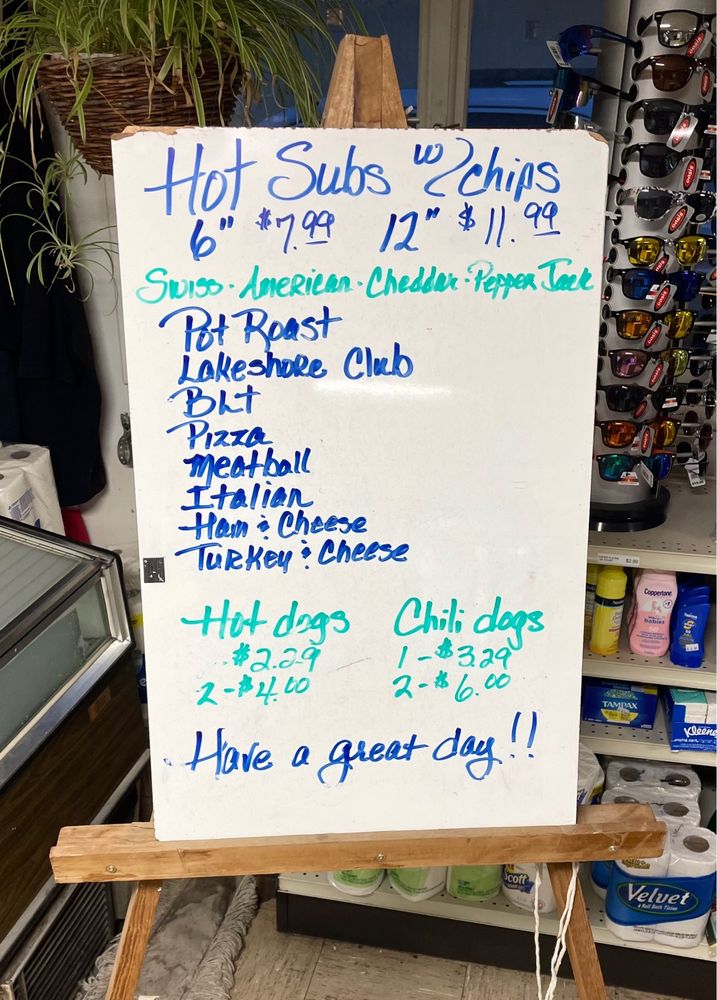 Hot Subs w/chips
6" $7.99 12" $11.99
Swiss · American · Cheddar · Pepper Jack
Pot Roast
Lakeshore Club
BLT
Pizza
Meatball
Italian
Ham & Cheese
Turkey & Cheese
Hot dogs Chili dogs
$2.29 1-$3.29
2-$4.00 2-$6.00
Have a great day!!
Coppertone
babies
TAMPAX
Kleene
Scott
Velvet